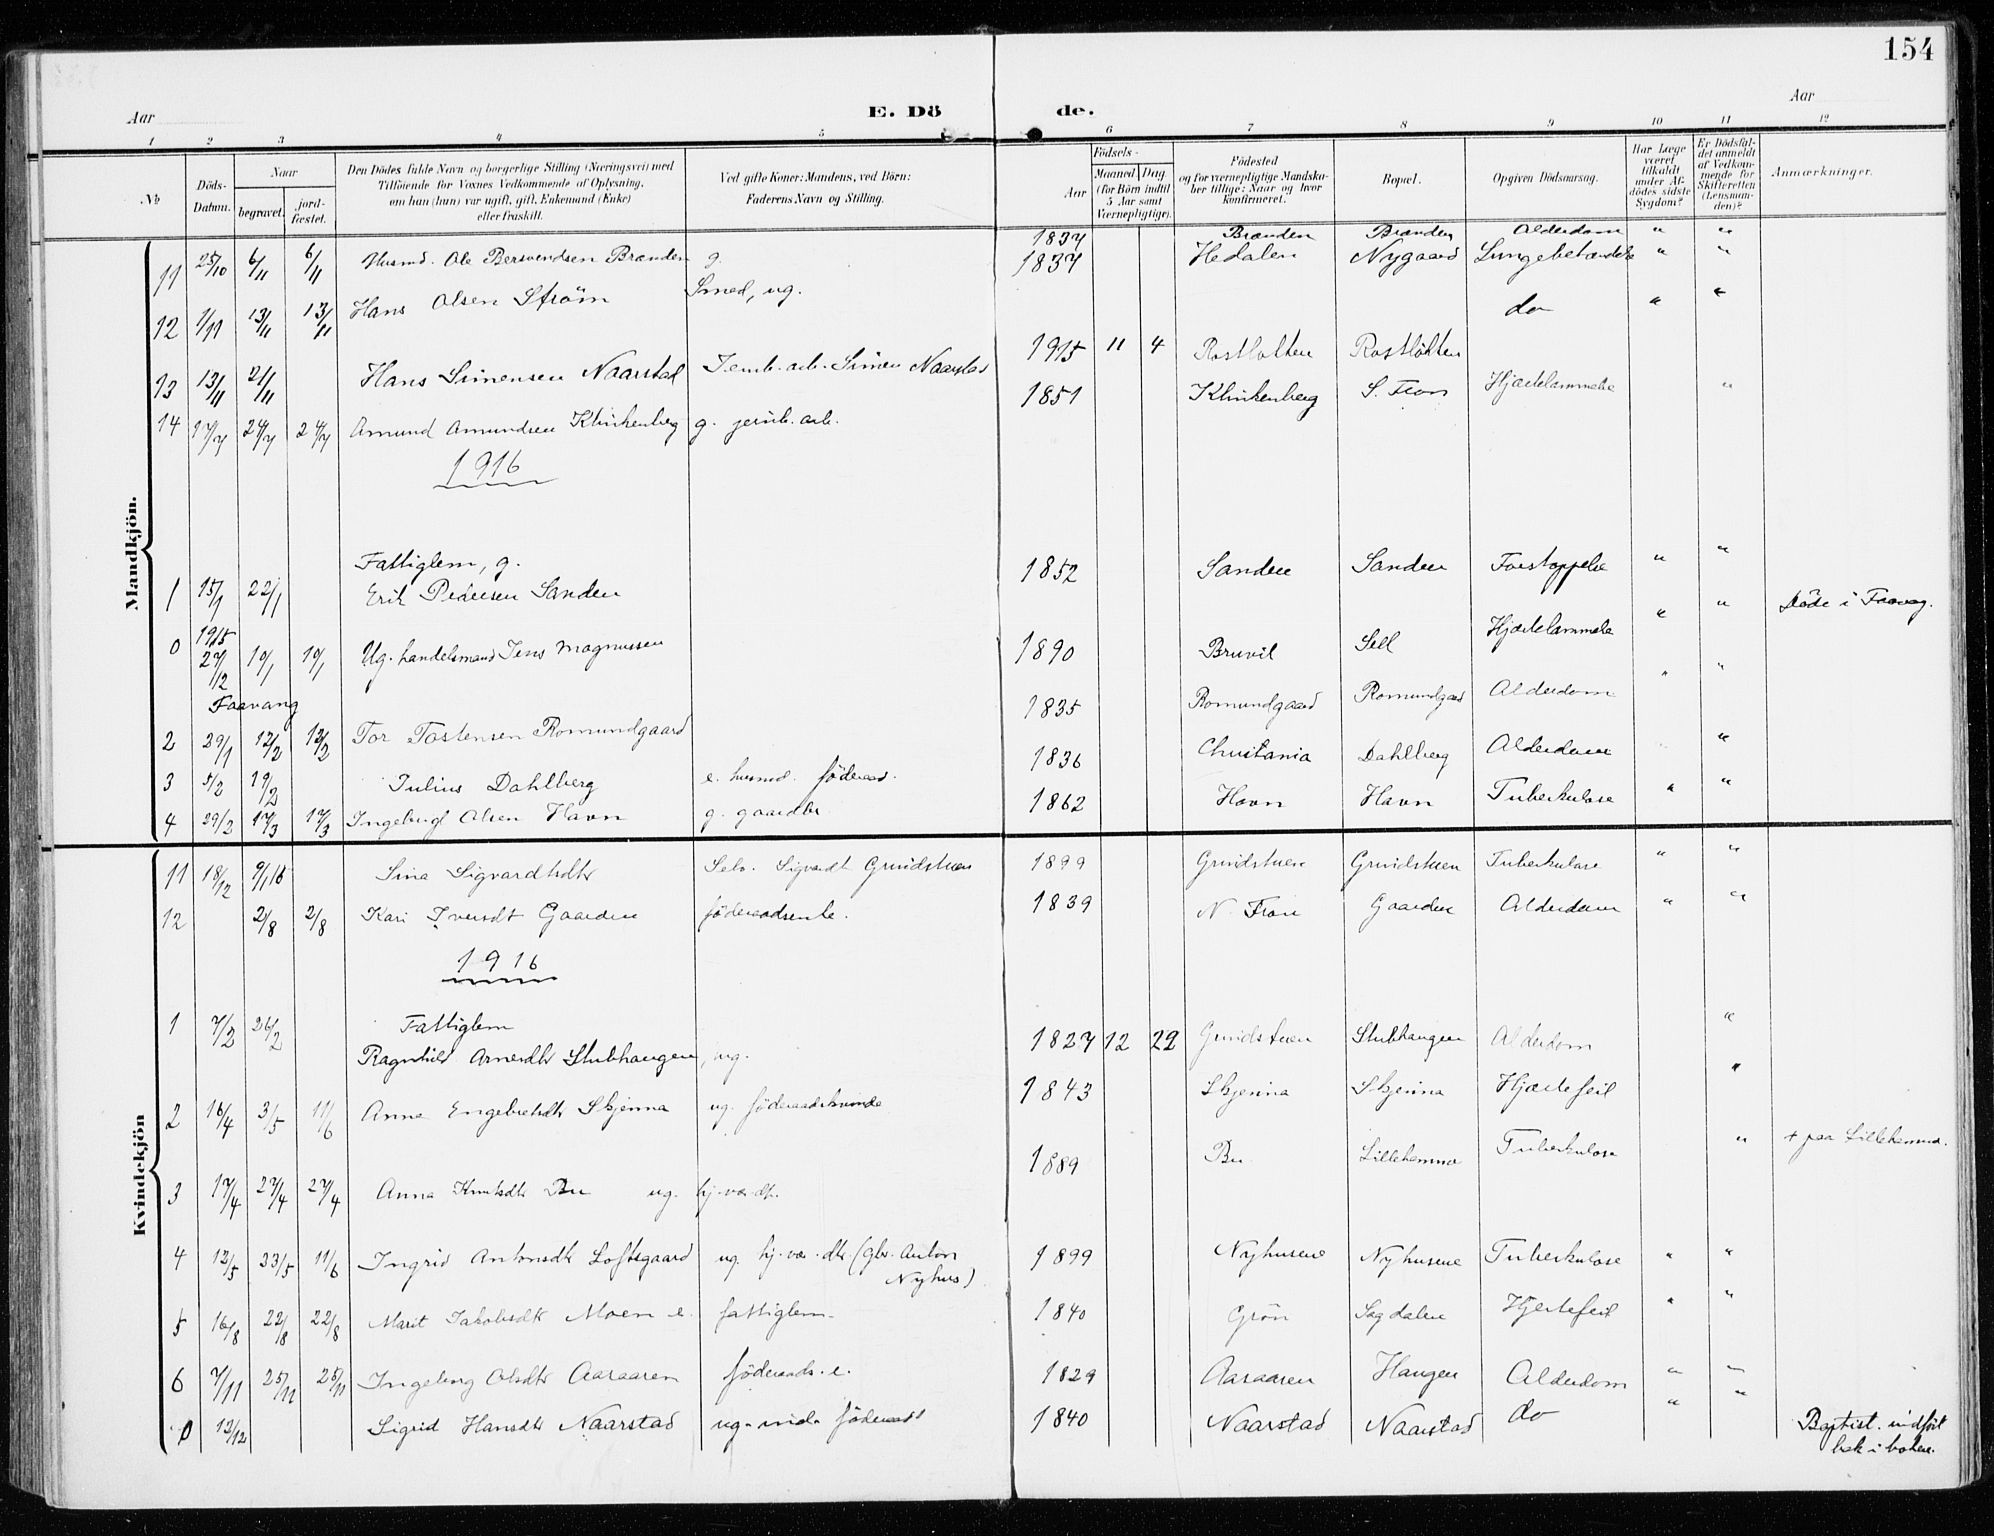 154
Aar
E. Dö de.
Aar
1 2 3 4 5 6 7 8 9 10 11 12
No
Döds-Datum.
Naar
begravet.
jordfæstet.
Den Dödes fulde Navn og borgerlige Stilling (Næringsvei) med
Tilföiende for Voxnes Vedkommende af Oplysning,
om han (hun) var ugift, gift, Enkemand (Enke)
eller fraskilt.
Ved gifte Koner: Mandens, ved Börn:
Faderens Navn og Stilling.
Födsels-
Aar
Maaned Dag
(for Börn indtil
5 Aar samt
Værnepligtige).
Födested
og for værnepligtige Mandskaber tillige: Naar og hvor
konfirmeret.
Bopæl.
Opgiven Dödsaarsag.
Har Læge
været
tilkaldt
under Afdödes sidste
Sygdom?
Er Dödsfaldet anmeldt
af Vedkommende for
Skifteretten
(Lensmanden)?
Anmærkninger.
Mandkjön.
11 25/10 6/11 6/11 Husmd. Ole Bersvendsen Brænden g. 1837 Brænden Brænden Alderdom " "
12 1/11 13/11 13/11 Hans Olsen Ström Smed, ug. 1837 Hedalen Nygaard Lungebetændelse " "
do " "
13 13/11 21/11 Hans Simensen Naarstad Jernb.arb. Simen Naarstad 1915 11 4 Rostlötten Rostlötten
14 17/7 24/7 24/7 Amund Amundsen Klinkenberg g. jernb.arb. 1851 Klinkenberg S. Fron Hjertelammelse "
1916
1 15/1 22/1 Fattiglem, g.
Erik Pedersen Sanden 1852 Sanden Sanden Forstoppelse " "
0 1915 27/12 10/1 10/1 Ug. handelsmand Jens Magnussen 1890 Bruvik Sell Hjertelammelse " " Döde i Faavag.
Faavang
2 29/1 12/2 12/2 Tor Tostensen Romundgaard 1835 Romundgaard Romundgaard Alderdom " "
3 5/2 19/2 Julius Dahlberg e. husmd. föderaad. 1836 Christania Dahlberg Alderdom "
4 29/2 17/3 17/3 Ingebrigt Olsen Havn g. gaardbr. 1862 Havn Havn Tuberkulose " "
Kvindekjön
11 18/12 9/1 16 Sina Sigvardtsdtr Selv. Sigvardt Grindstuen 1899 Grindstuen Grindstuen Tuberkulose " "
12 2/8 2/8 Kari Iversdt Gaarden föderaadsenke. 1839 N. Fron Gaarden Alderdom " "
1916
1 7/2 26/2 Fattiglem
Ragnhild Arnesdtr Stubhaugen, ug. 1827 12 22 Grindstuen Stubhaugen Alderdom "
2 16/4 3/5 11/6 Anne Engebretsdtr Skjenna ug. föderaadskvinde 1843 Skjenna Skjenna Hjertefeil "
3 17/4 27/4 27/4 Anna Knutsdtr Bu ug. hj.vær.dt. 1889 Bu Lillehammer Tuberkulose " + paa Lillehammer.
4 12/5 23/5 11/6 Ingrid Antonsdtr Loftsgaard ug. hj.vær.dtr. (gbr. Anton
Nyhus) 1899 Nyhusene Nyhusene Tuberkulose " "
5 16/8 22/8 22/8 Marit Jakobsdtr Moen e. fattiglem. 1840 Grön Sagdalen Hjertefeil " "
6 7/11 25/11 25/11 Ingeborg Olsdtr Aaraaren föderaads.e. 1829 Aaraaren Haugen Alderdom " "
0 12/12 Sigrid Hansdtr Naarstad ug. inds. föderaad 1840 Naarstad Naarstad do " " Baptist. indfört
bak i boken.